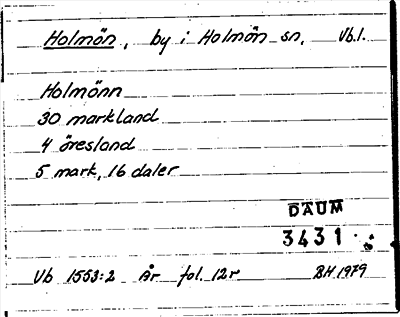 Holmön, by i Holmön sn, Vb.l.
Holmönn
30 markland
4 öresland
5 mark, 16 daler
DAUM
3431
Vb 1553:2 År fol. 12r BH 1979